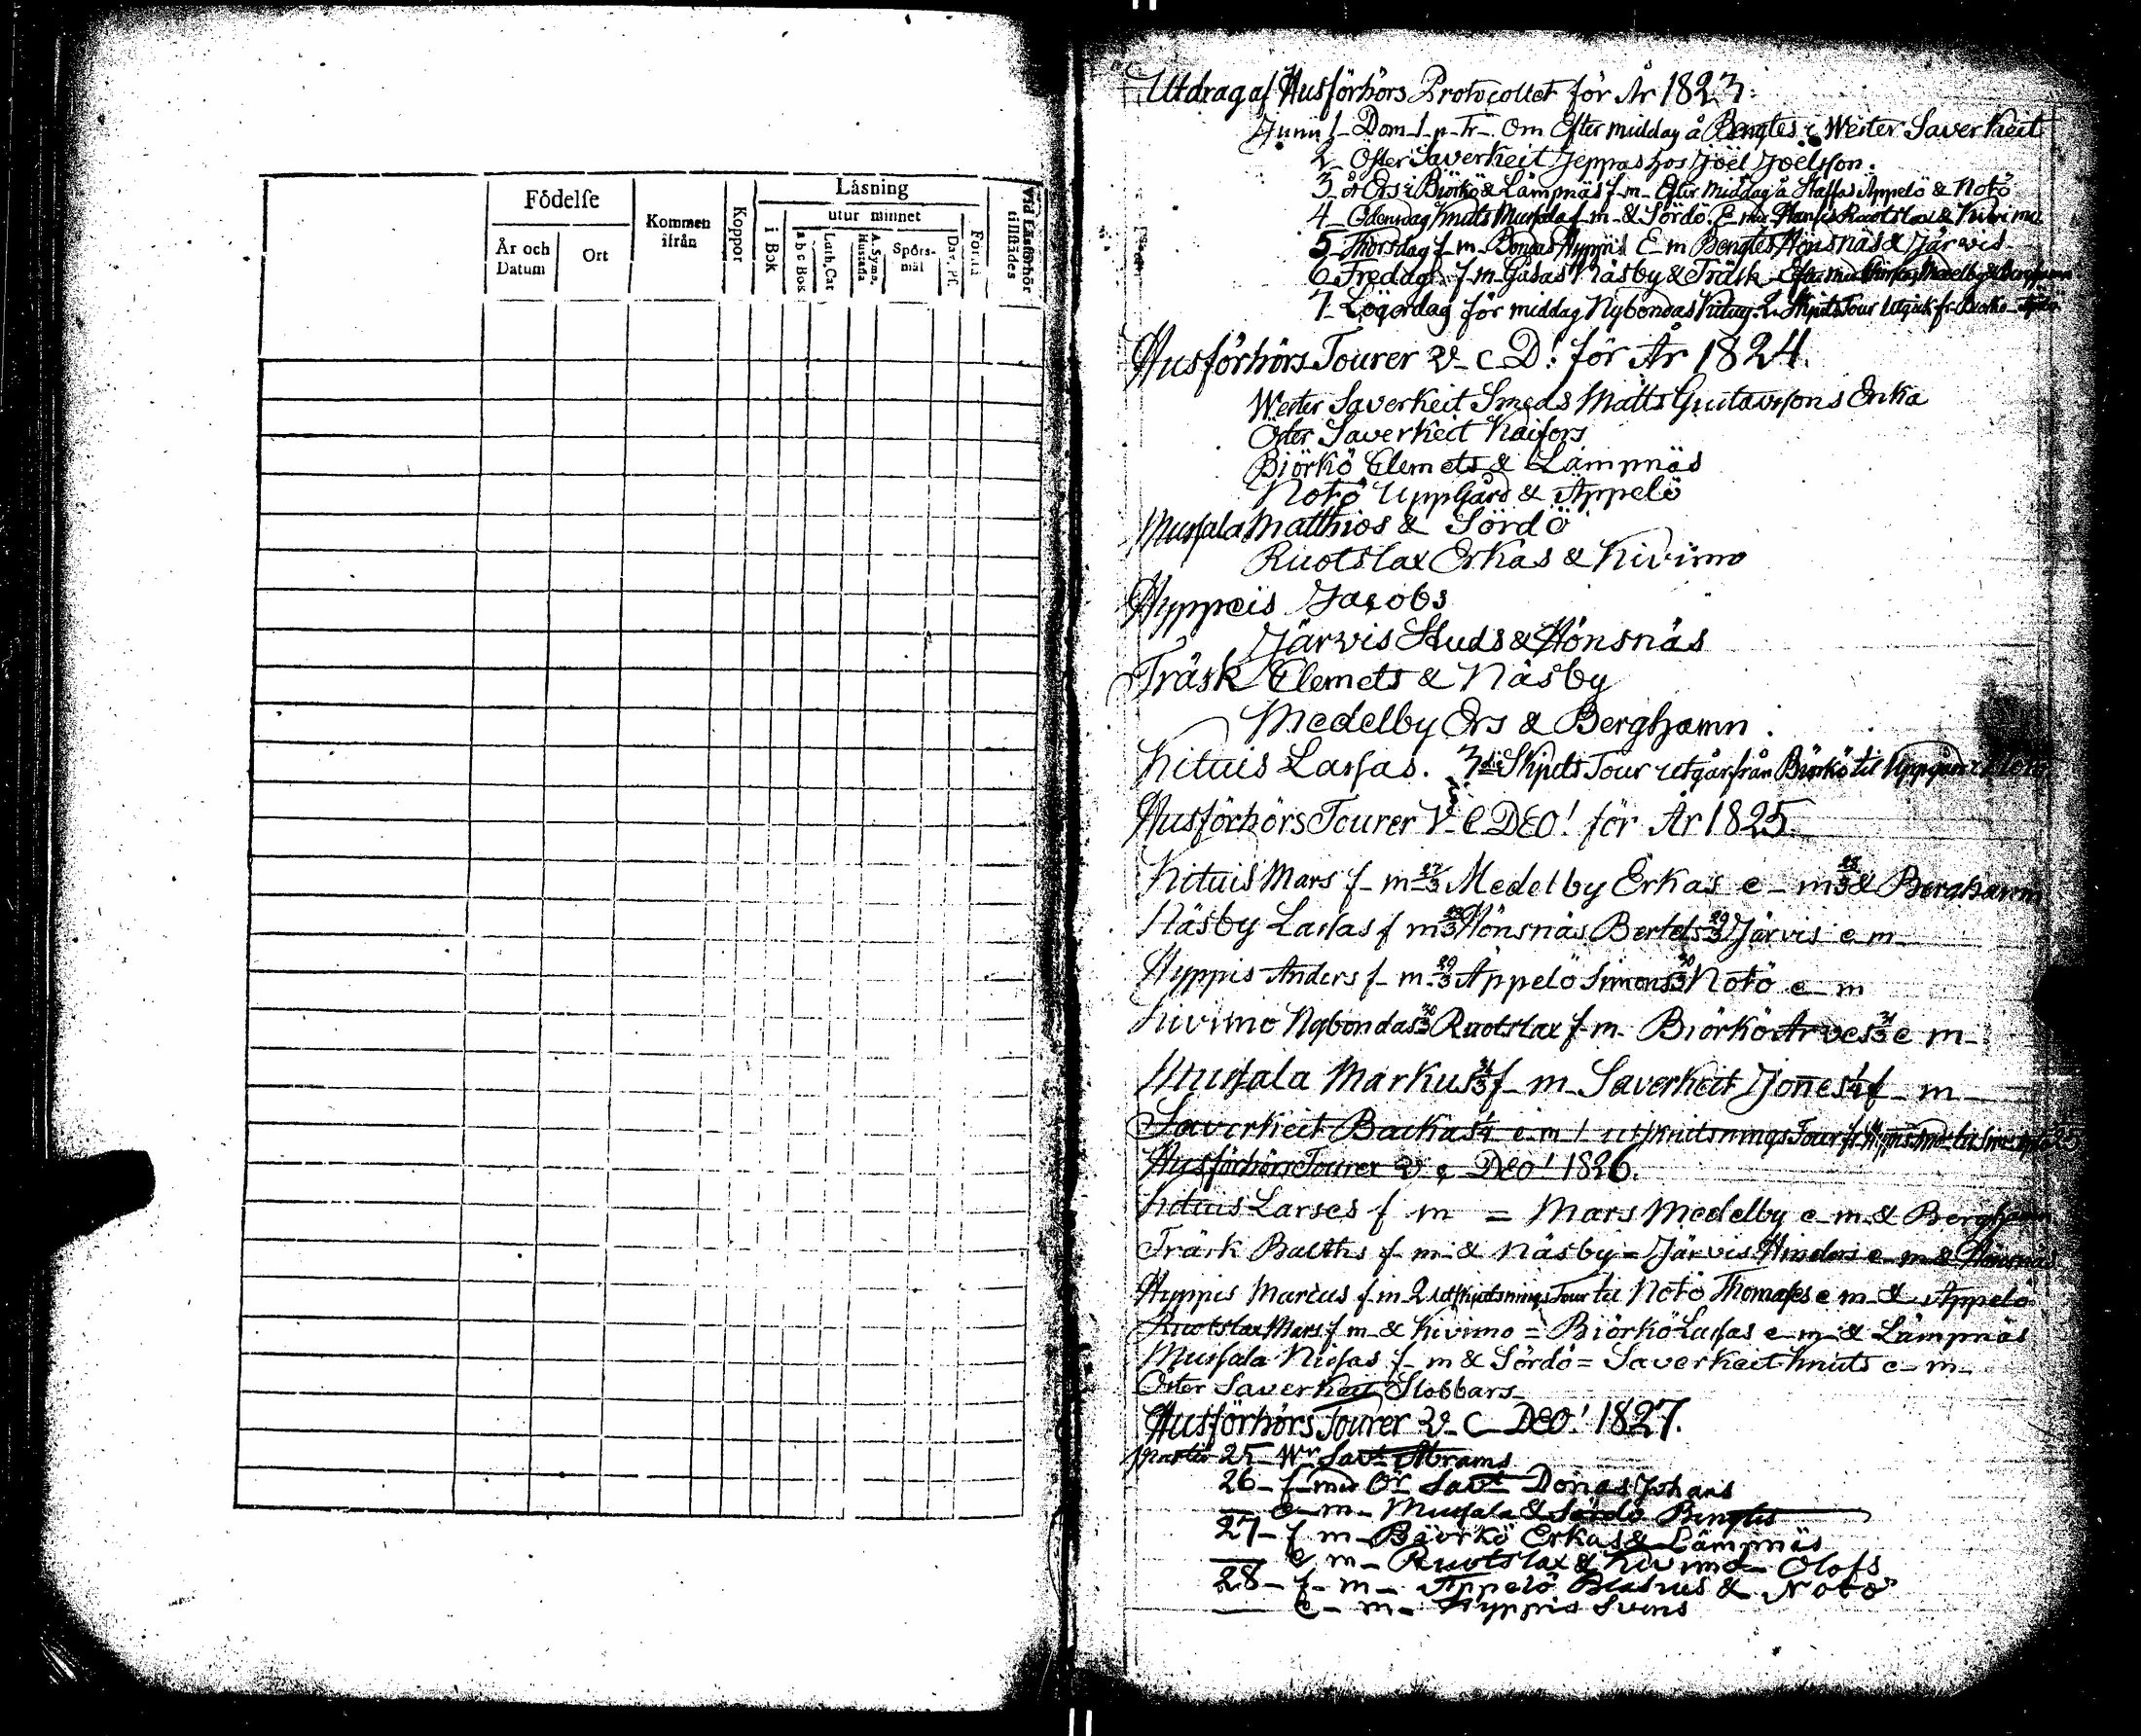 Födelse
Läsning
Kommen
ifrån
Koppor
utur minnet
Vid Läsförhör
tillstädes
År och
Datum
Ort
i Bok
a b c Bok
Luth. Cat
A. Symb.
Hustafla
Spörs-
mål
Dav. Ps.
Förstå
Utdrag af Husförhörs Protocollet för År 1823.
Junii 1 Dom 1 p Tr. Om Efter middag å Bengtes i Wester Saverkeit
2 Öster Saverkeit Jeppas hos Joël Joelsson.
3 å Ers i Biörkö & Lämpnäs f m Efter middag å Staffas Appelö & Notö
4 Odensdag Knuts Mussala f m & Sördö. Ruotslax & Kivimo
5 Thorsdag f m Bondas Hyppis E m Bengtes Hönsnäs & Järvis
6 Fredag f m Gåsas Näsby & Träsk Medelby & Berghamn
7 Lögerdag för middag Nybondas Kituis Tour utgick fr. Biorko
Husförhörs Tourer V c D! för År 1824.
Wester Saverkeit Smeds Matts Gustavssons Enka
Öster Saverkeit Kaifors
Biörkö Clemets & Lämpnäs
Notö Uppgård & Appelö
Mussala Matthios & Sördö
Ruotslax Erkas & Kivimo
Hyppeis Jacobs
Järwis Studs & Hönsnäs
Träsk Clemets & Näsby
Medelby Ers & Berghamn.
Kituis Lassas. 3die Skjuts Tour utgår från Biörkö til Uppgård i Notö
Husförhörs Tourer V C DEO! för År 1825.
Kituis Mars f m 27/3 Medelby Erkas e m 28/3 & Berghamn
Näsby Lassas f m Hönsnäs Bertels 29/3 Järvis e m
Hyppis Anders f m 29/3 Appelö Simons 30/3 Notö e m
Kivimo Nybondas 30/3 Ruotslax f m Biörkö Arves 31/3 e m
Mussala Markus 31/3 f m Saverkeit Jones 1/4 f m
Saverkeit Backas 1/4 e m 1 utskiutsnings Tour
Husförhörs Tourer V c DEO! 1826.
Kituis Larses f m = Mars Medelby e m & Berghamn
Träsk Balths f m & Näsby = Järvis Hinders e m & Hönsnäs
Hyppis Marcus f m 2 utskjutsnings Tour til Notö Thomases e m & Appelö
Ruotslax Mars f m & Kivimo = Biörkö Lassas e m & Lämpnäs
Mussala Nissas f m & Sördö = Saverkeit Knuts e m
Öster Saverkeit Slobbars
Husförhörs Tourer V C DEO! 1827.
Martii 25 Wr Savt Abrams
26 f m Ör Savt Donas Johans
e m Mussala & Sördö Bengtes
27 f m Biörkö Erkas & Lämpnäs
e m Ruotslax & Kivimo Olofs
28 f m Appelö Blasius & Notö
e m Hyppis Svens